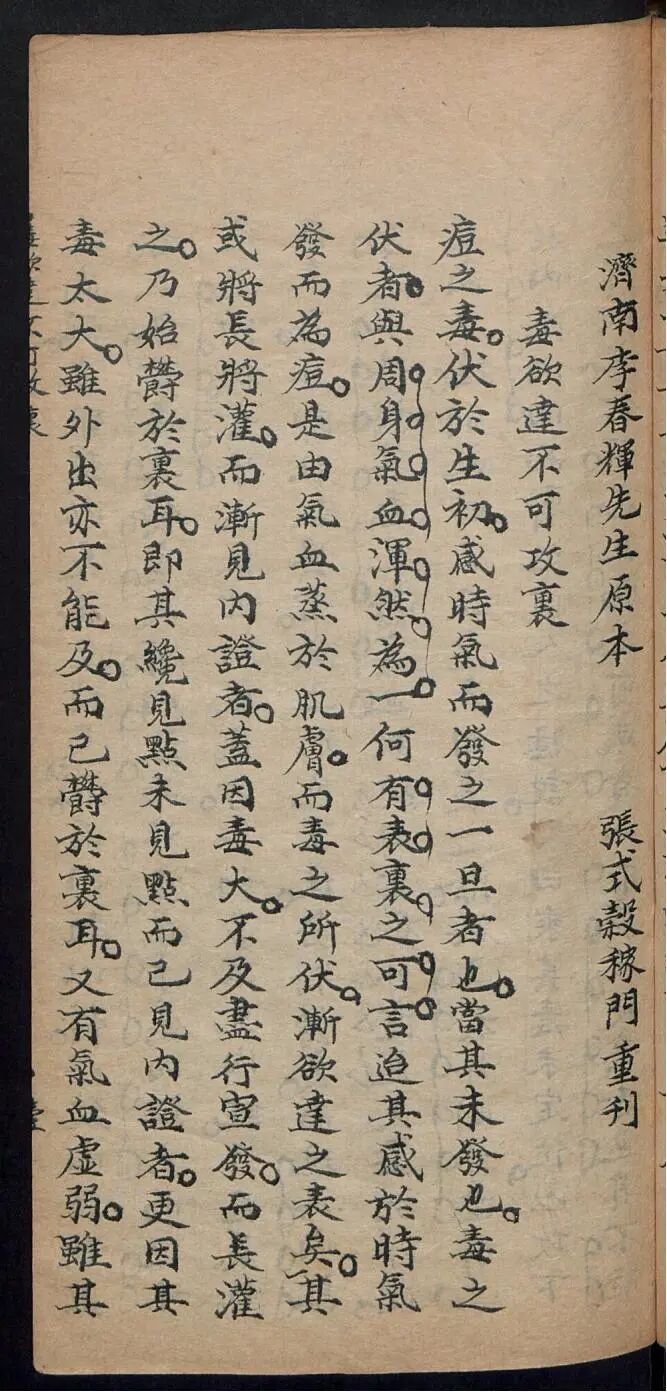 濟南李春輝先生原本　張式穀稼門重刊
毒欲達不可攻裏
痘之毒。伏於生初。感時氣而發之一旦者也。當其未發也。毒之
伏者。與周身氣血渾然為一何有表裏之可言迨其感於時氣
發而為痘。是由氣血蒸於肌膚。而毒之所伏。漸欲達之表矣。其
或將長將灌。而漸見內證者。蓋因毒大。不及盡行宣發。而長灌
之。乃始欝於裏耳。即其纔見點未見點而已見內證者。更因其
毒太大。雖外出亦不能及。而已欝於裏耳。又有氣血虛弱。雖其
毒欲達不可攻裏